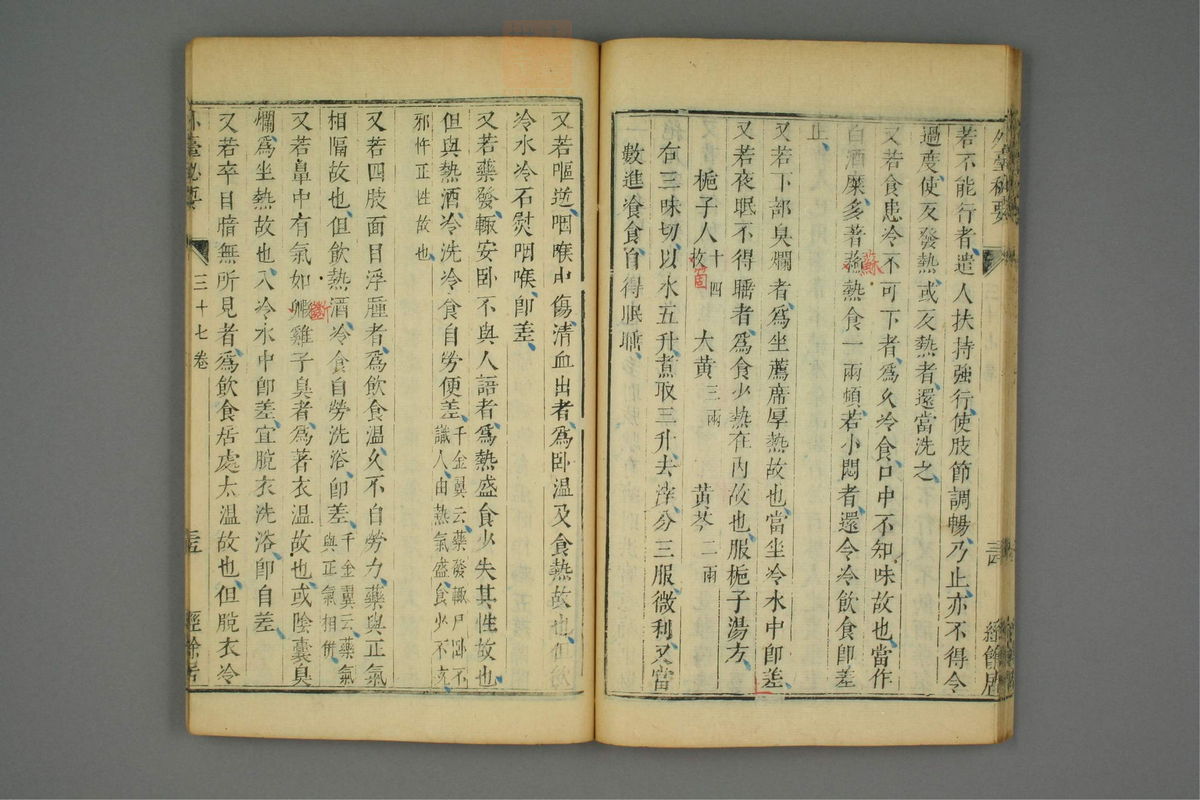 外臺秘要
三十七卷
經餘居
若不能行者、遣人扶持強行、使肢節調暢、乃止、亦不得令
過度、使反發熱、或反熱者、還當洗之
又若食患冷、不可下者、爲久冷食、口中不知味故也、當作
白酒糜、多著
熱食一兩頓、若小悶者、還令冷飲食卽差
又若下部臭爛者、爲坐薦席厚熱故也、當坐冷水中卽差
又若夜眠不得䐿者、爲食少熱在內故也、服梔子湯方
梔子人十四枚 大黃三兩 黃芩二兩
右三味切、以水五升煮取三升、去滓、分三服、微利、又當
數進飡食、自得眠䐿
又若嘔逆、咽喉中傷淸血出者、爲臥溫及食熱故也、
冷水冷石熨咽喉、卽差
又若藥發、輒安臥不與人語者、爲熱盛食少失其性故也、
但與熱酒、冷洗冷食自勞便差、千金翼云、藥發輒尸臥不識人、由熱氣盛食少不充、
邪忤正性故也
又若四肢面目浮腫者、爲飲食溫、久不自勞力、藥與正氣
相隔故也、但飲熱酒、冷食自勞洗浴、卽差、千金翼云、藥氣與正氣相併、
又若鼻中有氣如毈雞子臭者、爲著衣溫故也、或陰囊臭
爛、爲坐熱故也、入冷水中卽差、宜脫衣洗浴、卽自差
又若卒目暗無所見者、爲飲食居處太溫故也、但脫衣冷
外臺秘要
三十七卷
經餘居